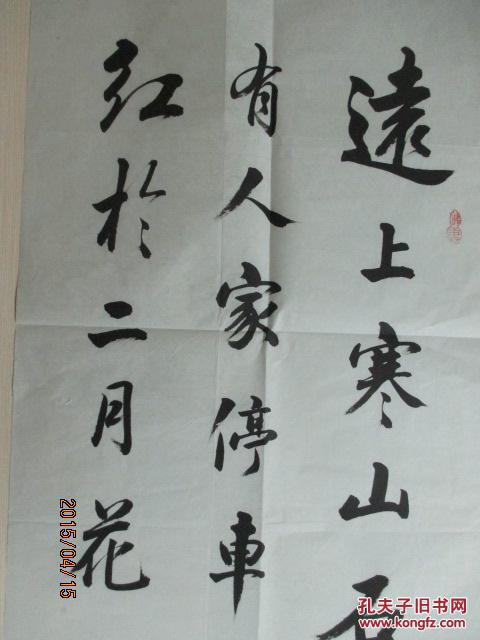 遠上寒山石
有人家停車
紅於二月花
2015/04/15
孔夫子旧书网
www.kongfz.com